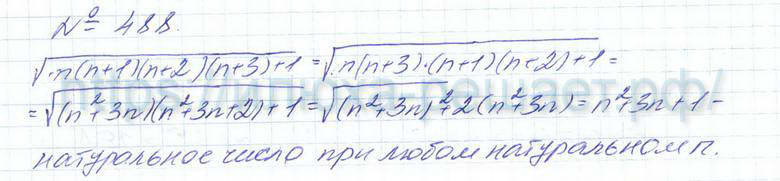 № 488.
√n(n+1)(n+2)(n+3)+1 = √n(n+3)·(n+1)(n+2)+1 =
= √(n²+3n)(n²+3n+2)+1 = √(n²+3n)²+2(n²+3n) = n²+3n+1 –
натуральное число при любом натуральном n.